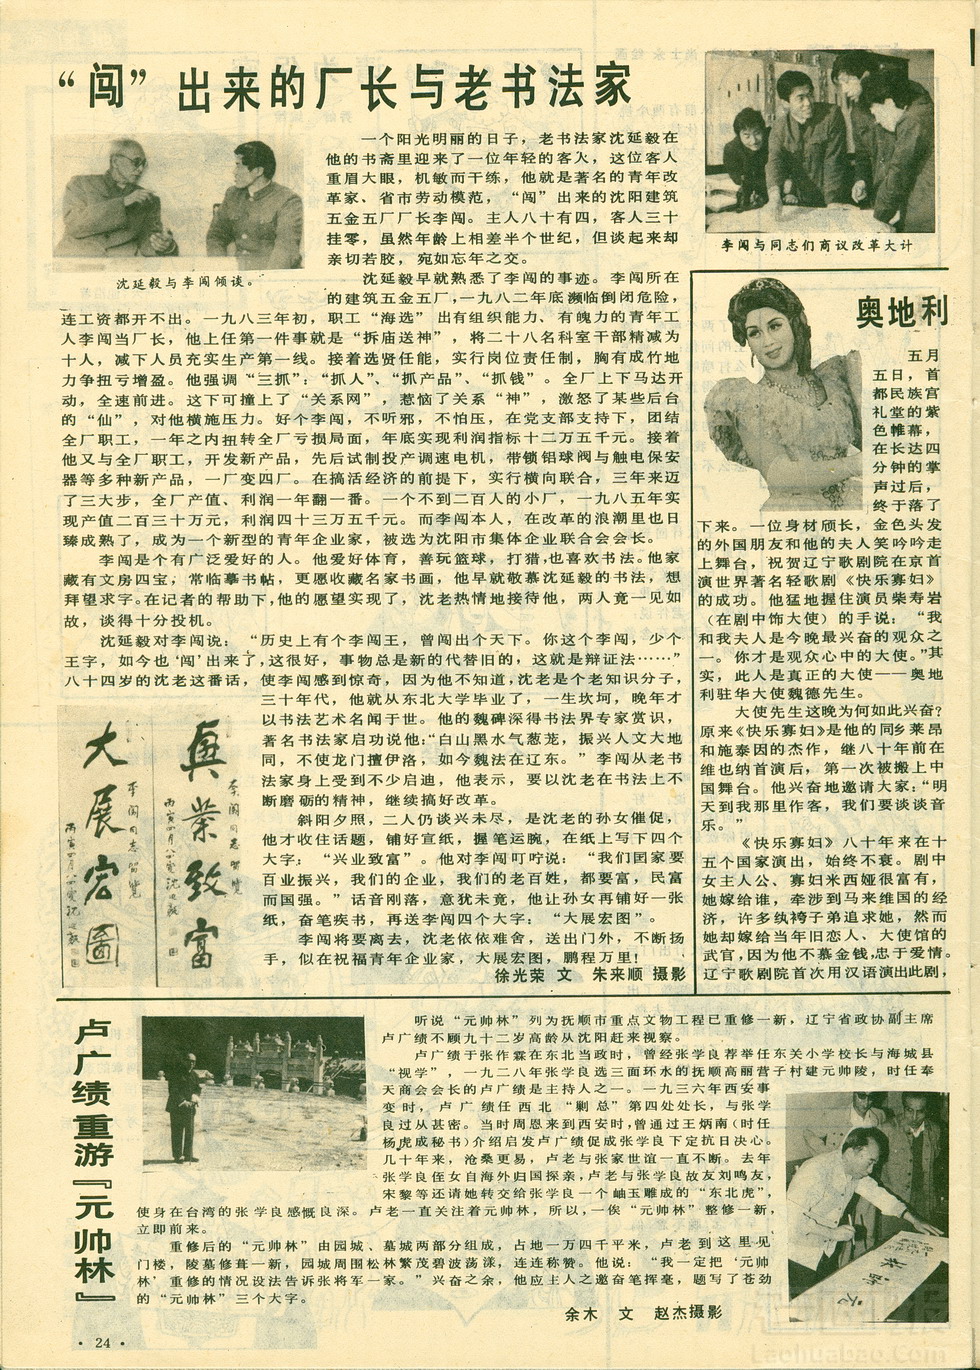 “闯”出来的厂长与老书法家
沈延毅与李闯倾谈。
一个阳光明丽的日子，老书法家沈延毅在
他的书斋里迎来了一位年轻的客人，这位客人
重眉大眼，机敏而干练，他就是著名的青年改
革家、省市劳动模范，“闯”出来的沈阳建筑
五金五厂厂长李闯。主人八十有四，客人三十
挂零，虽然年龄上相差半个世纪，但谈起来却
亲切若胶，宛如忘年之交。
沈延毅早就熟悉了李闯的事迹。李闯所在
的建筑五金五厂，一九八二年底濒临倒闭危险，
连工资都开不出。一九八三年初，职工“海选”出有组织能力、有魄力的青年工
人李闯当厂长，他上任第一件事就是“拆庙送神”，将二十八名科室干部精减为
十人，减下人员充实生产第一线。接着选贤任能，实行岗位责任制，胸有成竹地
力争扭亏增盈。他强调“三抓”：“抓人”、“抓产品”、“抓钱”。全厂上下马达开
动，全速前进。这下可撞上了“关系网”，惹恼了关系“神”，激怒了某些后台
的“仙”，对他横施压力。好个李闯，不听邪，不怕压，在党支部支持下，团结
全厂职工，一年之内扭转全厂亏损局面，年底实现利润指标十二万五千元。接着
他又与全厂职工，开发新产品，先后试制投产调速电机，带锁铝球阀与触电保安
器等多种新产品，一厂变四厂。在搞活经济的前提下，实行横向联合，三年来迈
了三大步，全厂产值、利润一年翻一番。一个不到二百人的小厂，一九八五年实
现产值二百三十万元，利润四十三万五千元。而李闯本人，在改革的浪潮里也日
臻成熟了，成为一个新型的青年企业家，被选为沈阳市集体企业联合会会长。
李闯是个有广泛爱好的人。他爱好体育，善玩篮球，打猎，也喜欢书法。他家
藏有文房四宝，常临摹书帖，更愿收藏名家书画，他早就敬慕沈延毅的书法，想
拜望求字。在记者的帮助下，他的愿望实现了，沈老热情地接待他，两人竟一见如
故，谈得十分投机。
沈延毅对李闯说：“历史上有个李闯王，曾闯出个天下。你这个李闯，少个
王字，如今也‘闯’出来了，这很好，事物总是新的代替旧的，这就是辩证法……”
八十四岁的沈老这番话，使李闯感到惊奇，因为他不知道，沈老是个老知识分子，
三十年代，他就从东北大学毕业了，一生坎坷，晚年才
以书法艺术名闻于世。他的魏碑深得书法界专家赏识，
著名书法家启功说他：“白山黑水气葱茏，振兴人文大地
同，不使龙门擅伊洛，如今魏法在辽东。”李闯从老书
法家身上受到不少启迪，他表示，要以沈老在书法上不
断磨砺的精神，继续搞好改革。
斜阳夕照，二人仍谈兴未尽，是沈老的孙女催促，
他才收住话题，铺好宣纸，握笔运腕，在纸上写下四个
大字：“兴业致富”。他对李闯叮咛说：“我们国家要
百业振兴，我们的企业，我们的老百姓，都要富，民富
而国强。”话音刚落，意犹未竟，他让孙女再铺好一张
纸，奋笔疾书，再送李闯四个大字：“大展宏图”。
李闯将要离去，沈老依依难舍，送出门外，不断扬
手，似在祝福青年企业家，大展宏图，鹏程万里！
徐光荣 文 朱来顺 摄影
大展宏图
李闯同志智览
兴业致富
李闯同志智览
李闯与同志们商议改革大计
奥地利
五月
五日，首
都民族宫
礼堂的紫
色帷幕，
在长达四
分钟的掌
声过后，
终于落了
下来。一位身材颀长，金色头发
的外国朋友和他的夫人笑吟吟走
上舞台，祝贺辽宁歌剧院在京首
演世界著名轻歌剧《快乐寡妇》
的成功。他猛地握住演员柴寿岩
（在剧中饰大使）的手说：“我
和我夫人是今晚最兴奋的观众之
一。你才是观众心中的大使。”其
实，此人是真正的大使——奥地
利驻华大使魏德先生。
大使先生这晚为何如此兴奋？
原来《快乐寡妇》是他的同乡莱昂
和施泰因的杰作，继八十年前在
维也纳首演后，第一次被搬上中
国舞台。他兴奋地邀请大家：“明
天到我那里作客，我们要谈谈音
乐。”
《快乐寡妇》八十年来在十
五个国家演出，始终不衰。剧中
女主人公、寡妇米西娅很富有，
她嫁给谁，牵涉到马来维国的经
济，许多纨袴子弟追求她，然而
她却嫁给当年旧恋人、大使馆的
武官，因为他不慕金钱，忠于爱情。
辽宁歌剧院首次用汉语演出此剧，
卢广绩重游『元帅林』
听说“元帅林”列为抚顺市重点文物工程已重修一新，辽宁省政协副主席
卢广绩不顾九十二岁高龄从沈阳赶来视察。
卢广绩于张作霖在东北当政时，曾经张学良荐举任东关小学校长与海城县
“视学”，一九二八年张学良选三面环水的抚顺高丽营子村建元帅陵，时任奉
天商会会长的卢广绩是主持人之一。一九三六年西安事
变时，卢广绩任西北“剿总”第四处处长，与张学
良过从甚密。当时周恩来到西安时，曾通过王炳南（时任
杨虎成秘书）介绍启发卢广绩促成张学良下定抗日决心。
几十年来，沧桑更易，卢老与张家世谊一直不断。去年
张学良侄女自海外归国探亲，卢老与张学良故友刘鸣友，
宋黎等还请她转交给张学良一个岫玉雕成的“东北虎”，
使身在台湾的张学良感慨良深。卢老一直关注着元帅林，所以，一俟“元帅林”整修一新，
立即前来。
重修后的“元帅林”由园城、墓城两部分组成，占地一万四千平米，卢老到这里见
门楼，陵墓修葺一新，园城周围松林繁茂碧波荡漾，连连称赞。他说：“我一定把‘元帅
林’重修的情况设法告诉张将军一家。”兴奋之余，他应主人之邀奋笔挥毫，题写了苍劲
的“元帅林”三个大字。
余木 文 赵杰摄影
·24·
Laohuabao.Com